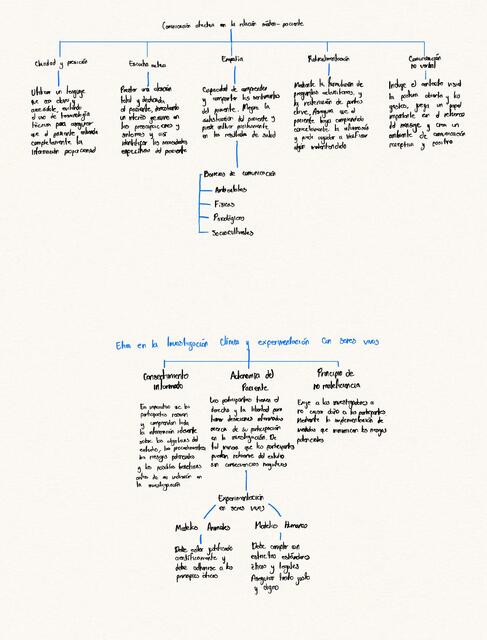 Comunicación efectiva en la relación médico-paciente
Claridad y precisión
Utilizar un lenguaje
que sea claro y
accesible, evitando
el uso de terminología
técnica para asegurar
que el paciente entienda
completamente la
información proporcionada
Escucha activa
Prestar una atención
total y dedicada
al paciente, demostrando
un interés genuino en
las preocupaciones y
síntomas y así
identificar las necesidades
específicas del paciente
Empatía
Capacidad de comprender
y compartir los sentimientos
del paciente. Mejora la
satisfacción del paciente y
puede influir positivamente
en los resultados de salud
Barreras de comunicación
Ambientales
Físicas
Psicológicas
Socioculturales
Retroalimentación
Mediante la formulación de
preguntas aclaratorias, y
la reiteración de puntos
clave. Asegura que el
paciente haya comprendido
correctamente la información
y puede ayudar a clarificar
algún malentendido
Comunicación
no verbal
Incluye el contacto visual
la postura abierta y los
gestos, juega un papel
importante en el refuerzo
del mensaje y crea un
ambiente de comunicación
receptivo y positivo
Etica en la Investigación Clínica y experimentación con seres vivos
Consentimiento
informado
participantes
comprendan toda
la información relevante
sobre los objetivos del
estudio, los procedimientos
los riesgos potenciales
y los posibles beneficios
antes de su inclusión en
la investigación
Autonomía del
Paciente
Los participantes tienen el
derecho y la libertad para
tomar decisiones informadas
acerca de su participación
en la investigación. De
tal manera que los participantes
puedan retirarse del estudio
sin consecuencias negativas
Principio de
no maleficencia
Exige a los investigadores a
no causar daño a los participantes
Mediante la implementación de
medidas que minimicen los riesgos
potenciales
Experimentación
en seres vivos
Modelos Animales
Debe estar justificado
científicamente y
debe adherirse a los
principios éticos
Modelos Humanos
Debe cumplir con
estrictos estándares
éticos y legales
Asegurar trato justo
y digno